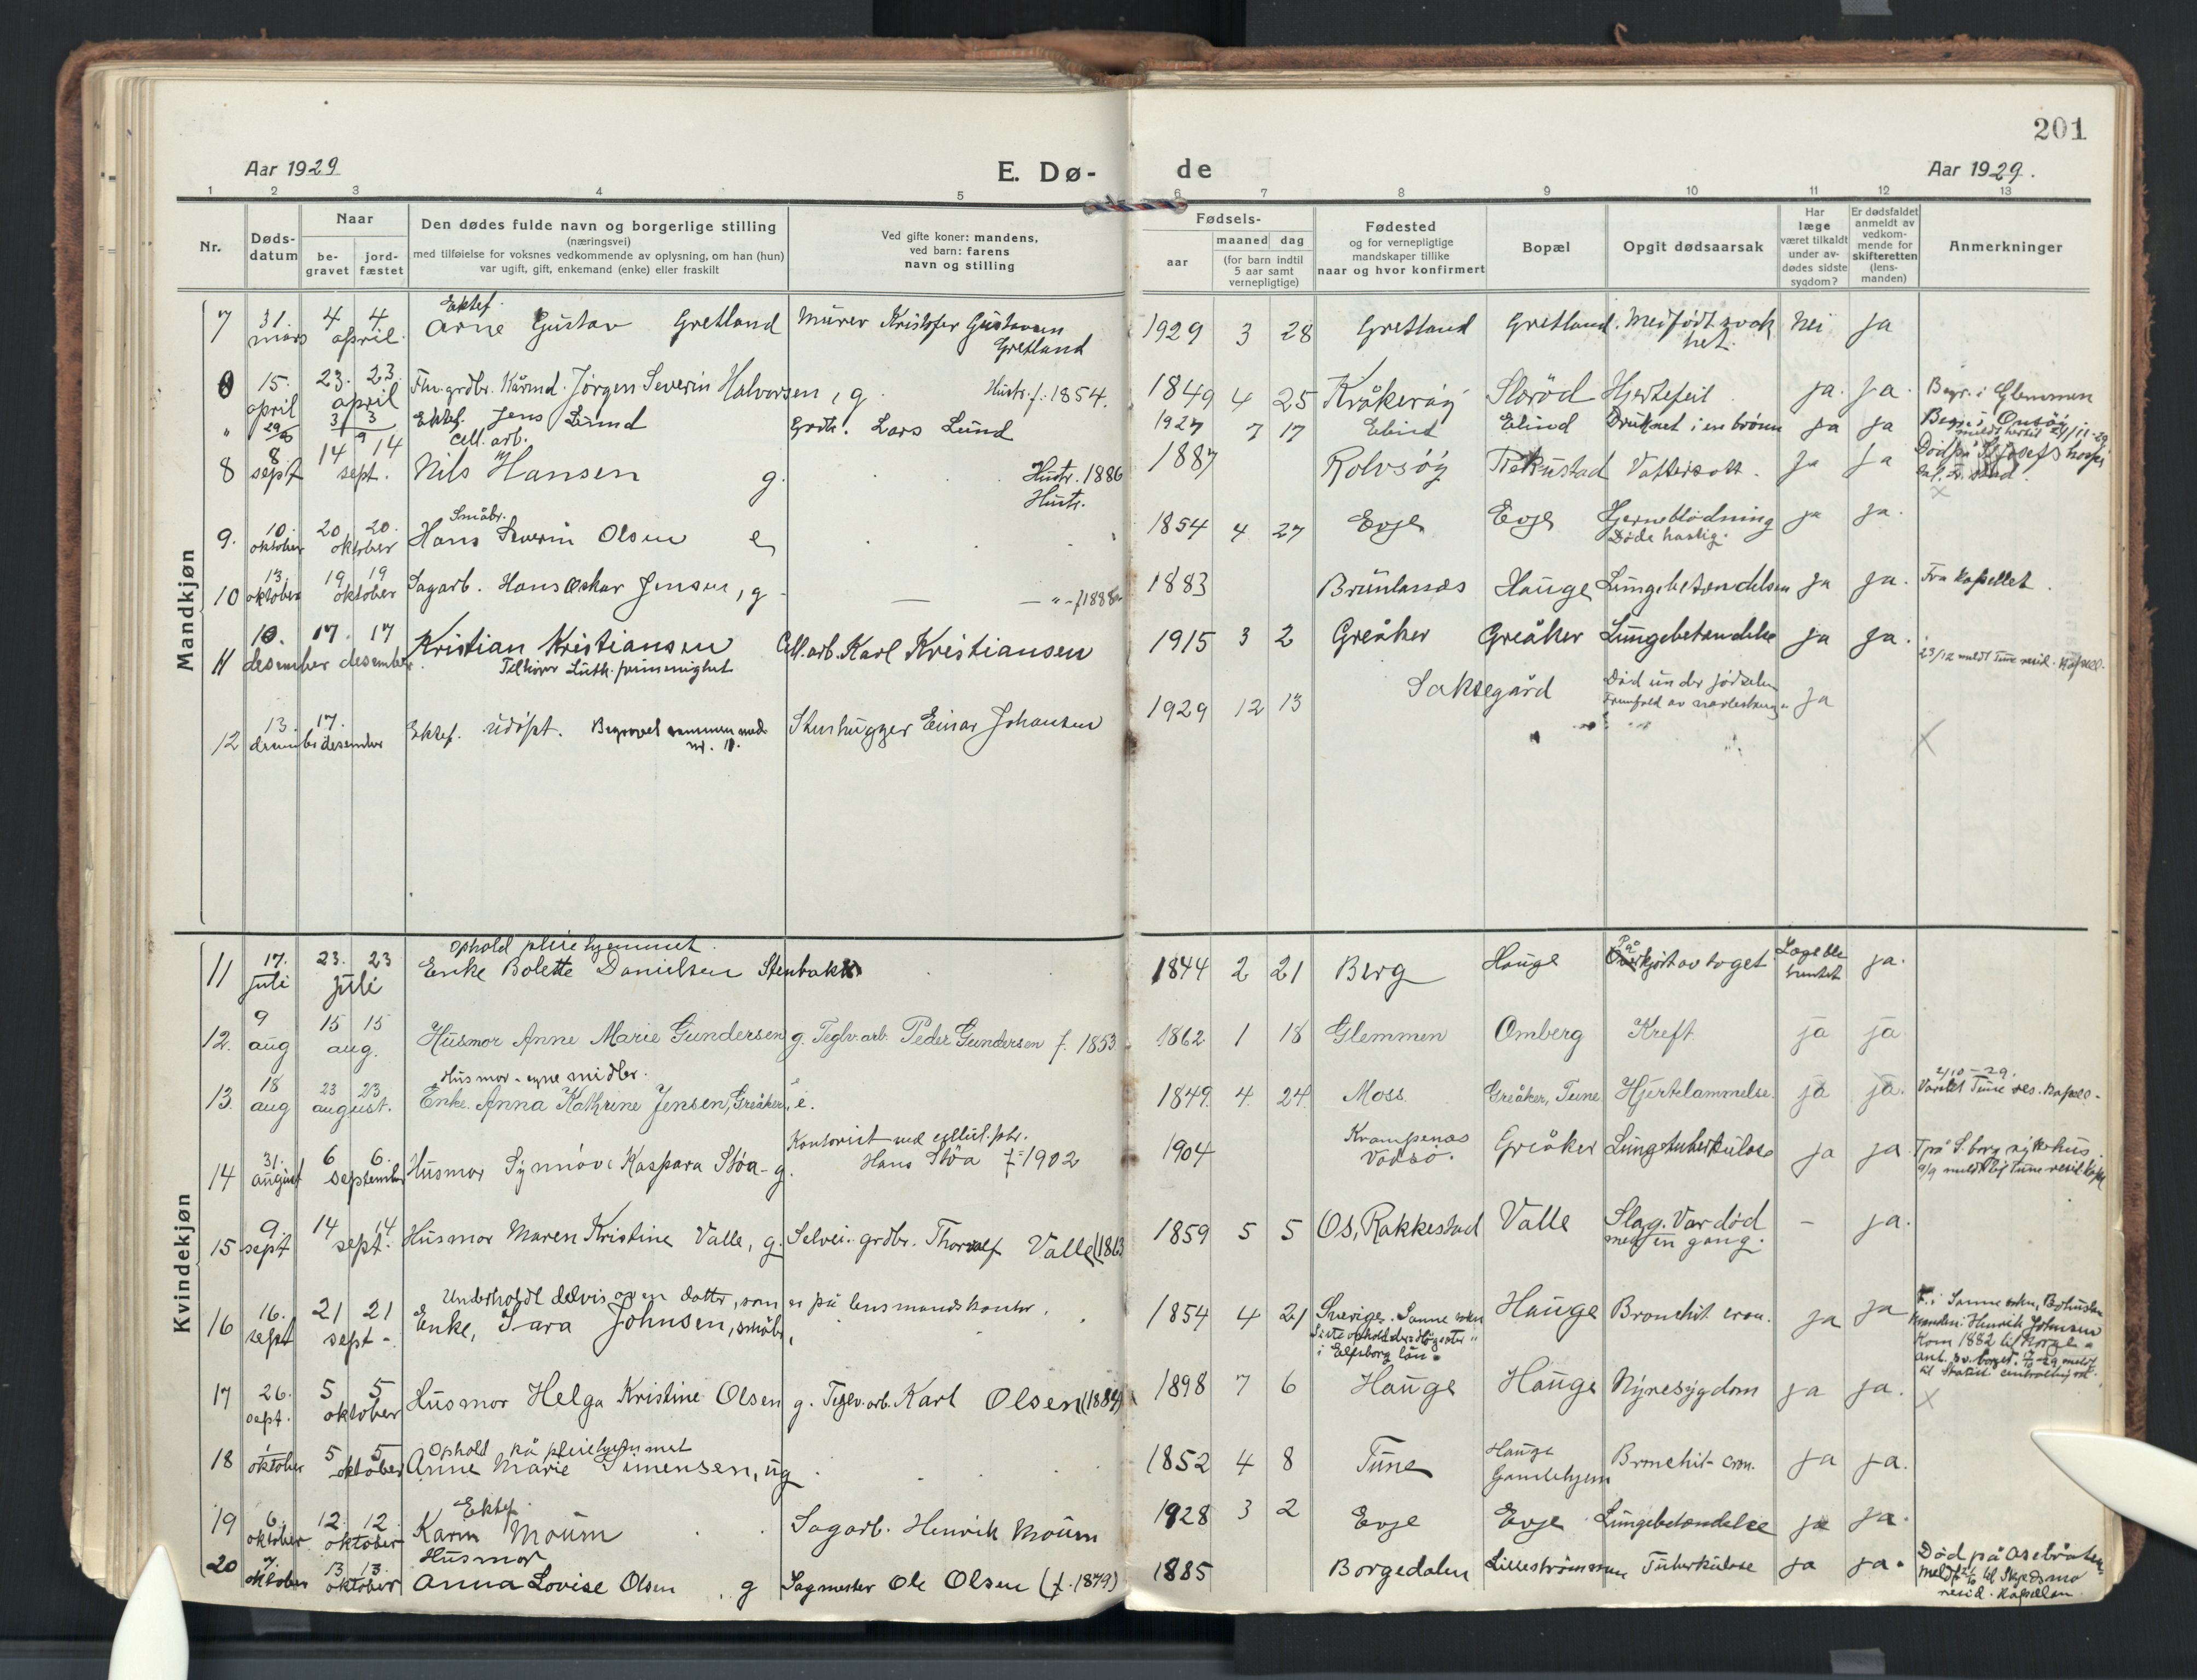 201
Aar 1929
E. Dø-
de
Aar 1929.
1 2 3 4 5 6 7 8 9 10 11 12 13
Nr.
Døds-
datum
Naar
be-
gravet
jord-
fæstet
Den dødes fulde navn og borgerlige stilling
(næringsvei)
med tilføielse for voksnes vedkommende av oplysning, om han (hun)
var ugift, gift, enkemand (enke) eller fraskilt
Ved gifte koner: mandens,
ved barn: farens
navn og stilling
Fødsels-
aar
maaned dag
(for barn indtil
5 aar samt
vernepligtige)
Fødested
og for vernepligtige
mandskaper tillike
naar og hvor konfirmert
Bopæl
Opgit dødsaarsak
Har
læge
været tilkaldt
under av-
dødes sidste
sygdom?
Er dødsfaldet
anmeldt av
vedkom-
mende for
skifteretten
(lens-
manden)
Anmerkninger
Mandkjøn
Ektef.
7 31. mars 4 4 april. Arne Gustav Gretland Murer Kristofer Gustavsen Gretland 1929 3 28 Gretland Gretland. Medfødt svakhet. Nei ja
15. april 23. 23. april Fhv. grdbr. Kårmd. Jørgen Severin Halvorsen, g. Hustr. f. 1854. 1849 4 25 Kråkerøy Slorød Hjertefeil ja. ja. Begr. i Glemmen
" 3 3 Ektef. Jens Lund Grdbr. Lars Lund 1927 7 17 Elind Elind Druknet i en brønn ja ja Begr. i Onsøy
Cell. arb.
8 8. sept 14 14 sept. Nils Hansen g. Hustr. 1886 1887 Rolvsøy Rekustad Vattersott. ja ja Død på St Josefs hospital. Fr. stad.
Småbr. Hustr.
9. 10. oktober 20 20. oktober Hans Severin Olsen e 1854 4 27 Evje Evje Hjerneblødning ja ja.
Døde hastig.
10 13. oktober 19 19 oktober Sagarb. Hans Oskar Jensen, g — — " - f 1888 1883 Brunlanes Hauge Lungebetændelse ja ja. Fra kapellet.
11 10. desember 17 17 desember. Kristian Kristiansen Cell. arb. Karl Kristiansen 1915 3 2 Greåker Greåker Lungebetændelse ja ja.
Tilhører Luth. frimenighet 23/12 meldt Tune resid. kapell.
12 13. desember 17. desember Ektef. udøpt. Begravet sammen med nr. 11. Stenhugger Einar Johansen 1929 12 13 Saksegård Død under fødselen ja
Fremfald av navlestreng.
Kvindekjøn
Ophold pleiehjemmet.
11 17. juli 23. 23 juli Enke Bolette Danielsen Stenbakk 1844 2 21 Berg Hauge Påkjørt av toget Læge ble hentet ja.
12. 9 aug 15 15 aug. Husmor Anne Marie Gundersen g. Teglv. arb. Peder Gundersen f. 1853 1862 1 18 Glemmen Omberg Kreft. ja ja.
Husmor - egne midler. 2/10-29.
13. 18 aug 23 23 august. Enke. Anna Kathrine Jensen, Greåker, e. 1849. 4. 24. Moss. Greåker, Tune Hjertelammelse. ja ja. Varslet Tune res. kapell.
Kontorist ved cellul. fbr.
14 31. august 6 6. september Husmor Synnøve Kaspara Støa - g. Hans Støa f. 1902 1904 Krampenes Vadsø. Greåker Lungetuberkulose ja ja † på S. borg sykehus.
9/9 meldt til Tune resid. kap.
15 9. sept 14 14. sept. Husmor Maren Kristine Valle, g. Selvei. grdbr. Thoralf Valle (1863 1859 5 5 Os, Rakkestad Valle Slag. Var død med en gang. – ja.
Underholdt delvis av en datter, som er på lensmandskontor.
16 16. sept 21 21 sept - Enke, Sara Johnsen, småbr. 1854 4 21 Sverige. Sanne sokn Hauge Bronchit cron. ja ja F. i Sanne sokn, Bohuslen
i Elfsborg län. Manden: Henrik Johnsen
Kom 1882 til Norge.
17 26. sept. 5 5 oktober Husmor Helga Kristine Olsen g. Teglv. arb. Karl Olsen (1884) 1898 7 6 Hauge Hauge Nyresygdom ja ja.
Ophold på pleiehjemmet
18 1 oktober 5 5 oktober Anne Marie Simensen, ug 1852 4 8 Tune Hauge Gamlehjem Bronchit cron. ja ja.
Ektef.
19 6. oktober 12. 12. oktober Karin Moum Sagarb. Henrik Moum 1928 3 2 Evje Evje Lungebetændelse ja ja.
Husmor
20 7. oktober 13 13. oktober Anna Lovise Olsen g Sagmester Ole Olsen (f. 1879) 1885 Borgedalen Lillestrømmen Tuberkulose ja ja. Død på Aseråten
meldt til Skedsmo
resid. kapellan